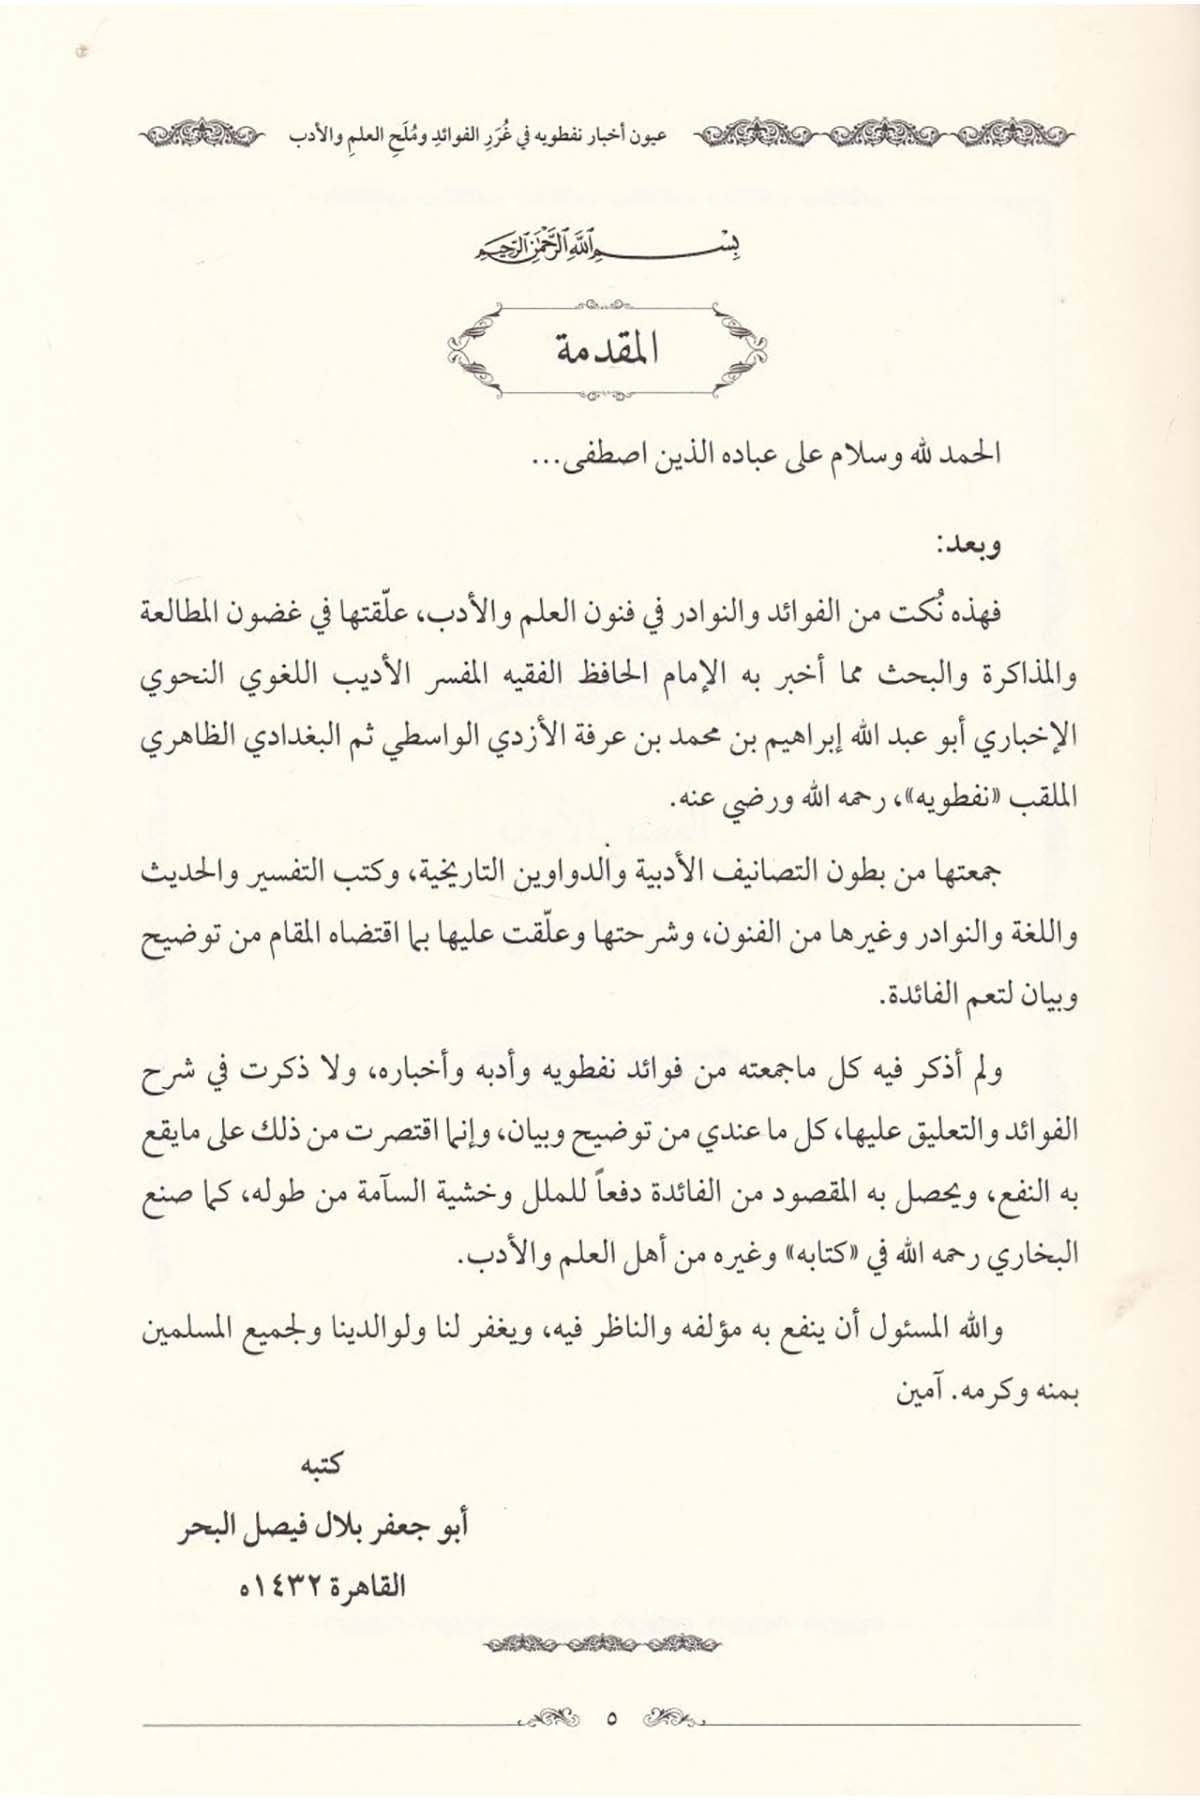 عيون أخبار نفطويه في غُرَرِ الفوائدِ ومُلَحِ العلمِ والأدب
بِسْمِ اللَّهِ الرَّحْمَٰنِ الرَّحِيمِ
المقدمة
الحمد لله وسلام على عباده الذين اصطفى...
وبعد:
فهذه نُكت من الفوائد والنوادر في فنون العلم والأدب، علّقتها في غضون المطالعة
والمذاكرة والبحث مما أخبر به الإمام الحافظ الفقيه المفسر الأديب اللغوي النحوي
الإخباري أبو عبد الله إبراهيم بن محمد بن عرفة الأزدي الواسطي ثم البغدادي الظاهري
الملقب «نفطويه»، رحمه الله ورضي عنه.
جمعتها من بطون التصانيف الأدبية والدواوين التاريخية، وكتب التفسير والحديث
واللغة والنوادر وغيرها من الفنون، وشرحتها وعلّقت عليها بما اقتضاه المقام من توضيح
وبيان لتعم الفائدة.
ولم أذكر فيه كل ماجمعته من فوائد نفطويه وأدبه وأخباره، ولا ذكرت في شرح
الفوائد والتعليق عليها، كل ما عندي من توضيح وبيان، وإنما اقتصرت من ذلك على مايقع
به النفع، ويحصل به المقصود من الفائدة دفعاً للملل وخشية السآمة من طوله، كما صنع
البخاري رحمه الله في «كتابه» وغيره من أهل العلم والأدب.
والله المسئول أن ينفع به مؤلفه والناظر فيه، ويغفر لنا ولوالدينا ولجميع المسلمين
بمنه وكرمه. آمين
كتبه
أبو جعفر بلال فيصل البحر
القاهرة ١٤٣٢ه
٥